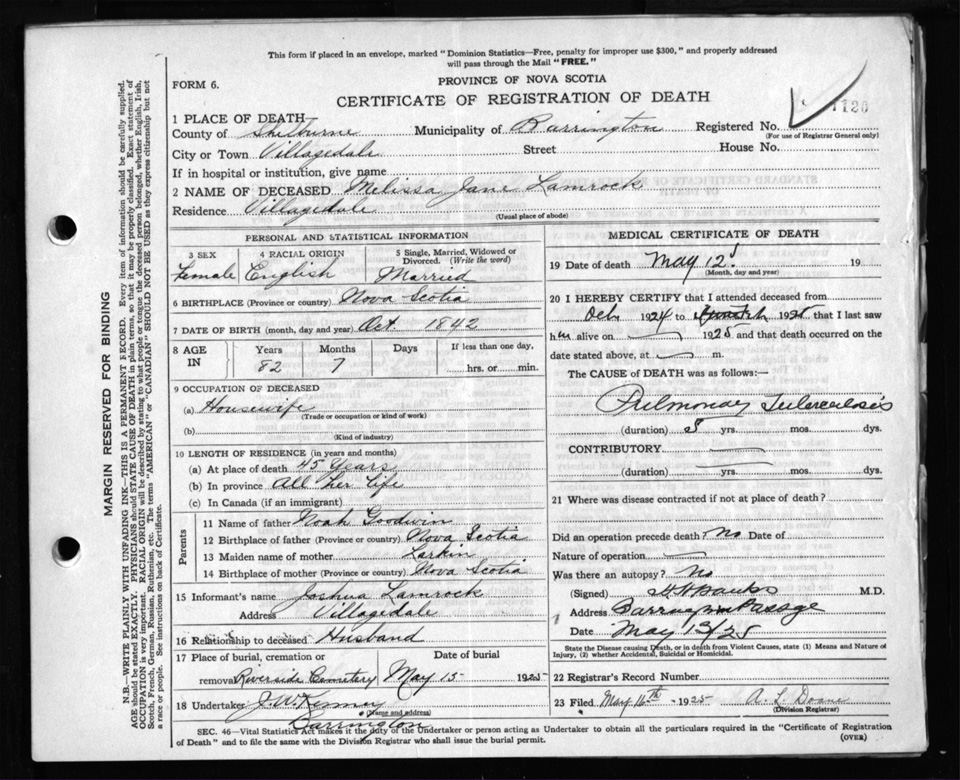 This form if placed in an envelope, marked "Dominion Statistics—Free, penalty for improper use $300," and properly addressed
will pass through the Mail "FREE."
FORM 6.
PROVINCE OF NOVA SCOTIA
CERTIFICATE OF REGISTRATION OF DEATH
1 PLACE OF DEATH
County of Shelburne Municipality of Barrington Registered No.
(For use of Registrar General only)
City or Town Villagedale Street House No.
If in hospital or institution, give name
2 NAME OF DECEASED Melissa Jane Lamrock
Residence Villagedale
(Usual place of abode)
PERSONAL AND STATISTICAL INFORMATION
3 SEX 4 RACIAL ORIGIN 5 Single, Married, Widowed or Divorced. (Write the word)
Female English Married
6 BIRTHPLACE (Province or country) Nova Scotia
7 DATE OF BIRTH (month, day and year) Oct. 1842
8 AGE IN Years Months Days If less than one day,
82 7 hrs. or min.
9 OCCUPATION OF DECEASED
(a) Housewife
(Trade or occupation or kind of work)
(b)
(Kind of industry)
10 LENGTH OF RESIDENCE (in years and months)
(a) At place of death 45 Years
(b) In province All her life
(c) In Canada (if an immigrant)
Parents
11 Name of father Noah Goodwin
12 Birthplace of father (Province or country) Nova Scotia
13 Maiden name of mother Larkin
14 Birthplace of mother (Province or country) Nova Scotia
15 Informant's name Joshua Lamrock
Address Villagedale
16 Relationship to deceased Husband
17 Place of burial, cremation or Date of burial
removal Riverside Cemetery May 15 1925
18 Undertaker J. W. Kenney
(Name and address)
Barrington
MEDICAL CERTIFICATE OF DEATH
19 Date of death May 12 19
(Month, day and year)
20 I HEREBY CERTIFY that I attended deceased from
1924 to 1925 that I last saw
h alive on 1925 and that death occurred on
date stated above, at m.
The CAUSE of DEATH was as follows:—
Pulmonary Tuberculosis
(duration) yrs. mos. dys.
CONTRIBUTORY
(duration) yrs. mos. dys.
21 Where was disease contracted if not at place of death?
Did an operation precede death? No Date of
Nature of operation
Was there an autopsy? No
(Signed) Banks M.D.
Address Barrington Passage
Date May 13/25
State the Disease causing Death, or in death from Violent Causes, state (1) Means and Nature of
Injury, (2) whether Accidental, Suicidal or Homicidal.
22 Registrar's Record Number
23 Filed May 16th 1925 A. L. Doane
(Division Registrar)
SEC. 46—Vital Statistics Act makes it the duty of the Undertaker or person acting as Undertaker to obtain all the particulars required in the "Certificate of Registration
of Death" and to file the same with the Division Registrar who shall issue the burial permit.
(OVER)
MARGIN RESERVED FOR BINDING
N.B.—WRITE PLAINLY WITH UNFADING INK—THIS IS A PERMANENT RECORD. Every item of information should be carefully supplied.
AGE should be stated EXACTLY. PHYSICIANS should STATE CAUSE OF DEATH in plain terms, so that it may be properly classified. Exact statement of
OCCUPATION is very important. RACIAL ORIGIN will be described by stating to what people or tongue the deceased person belonged, whether English, Irish,
Scotch, French, German, Russian, Ruthenian, etc. The terms "AMERICAN" or "CANADIAN" SHOULD NOT BE USED as they express citizenship but not
a race or people. See instructions on back of Certificate.